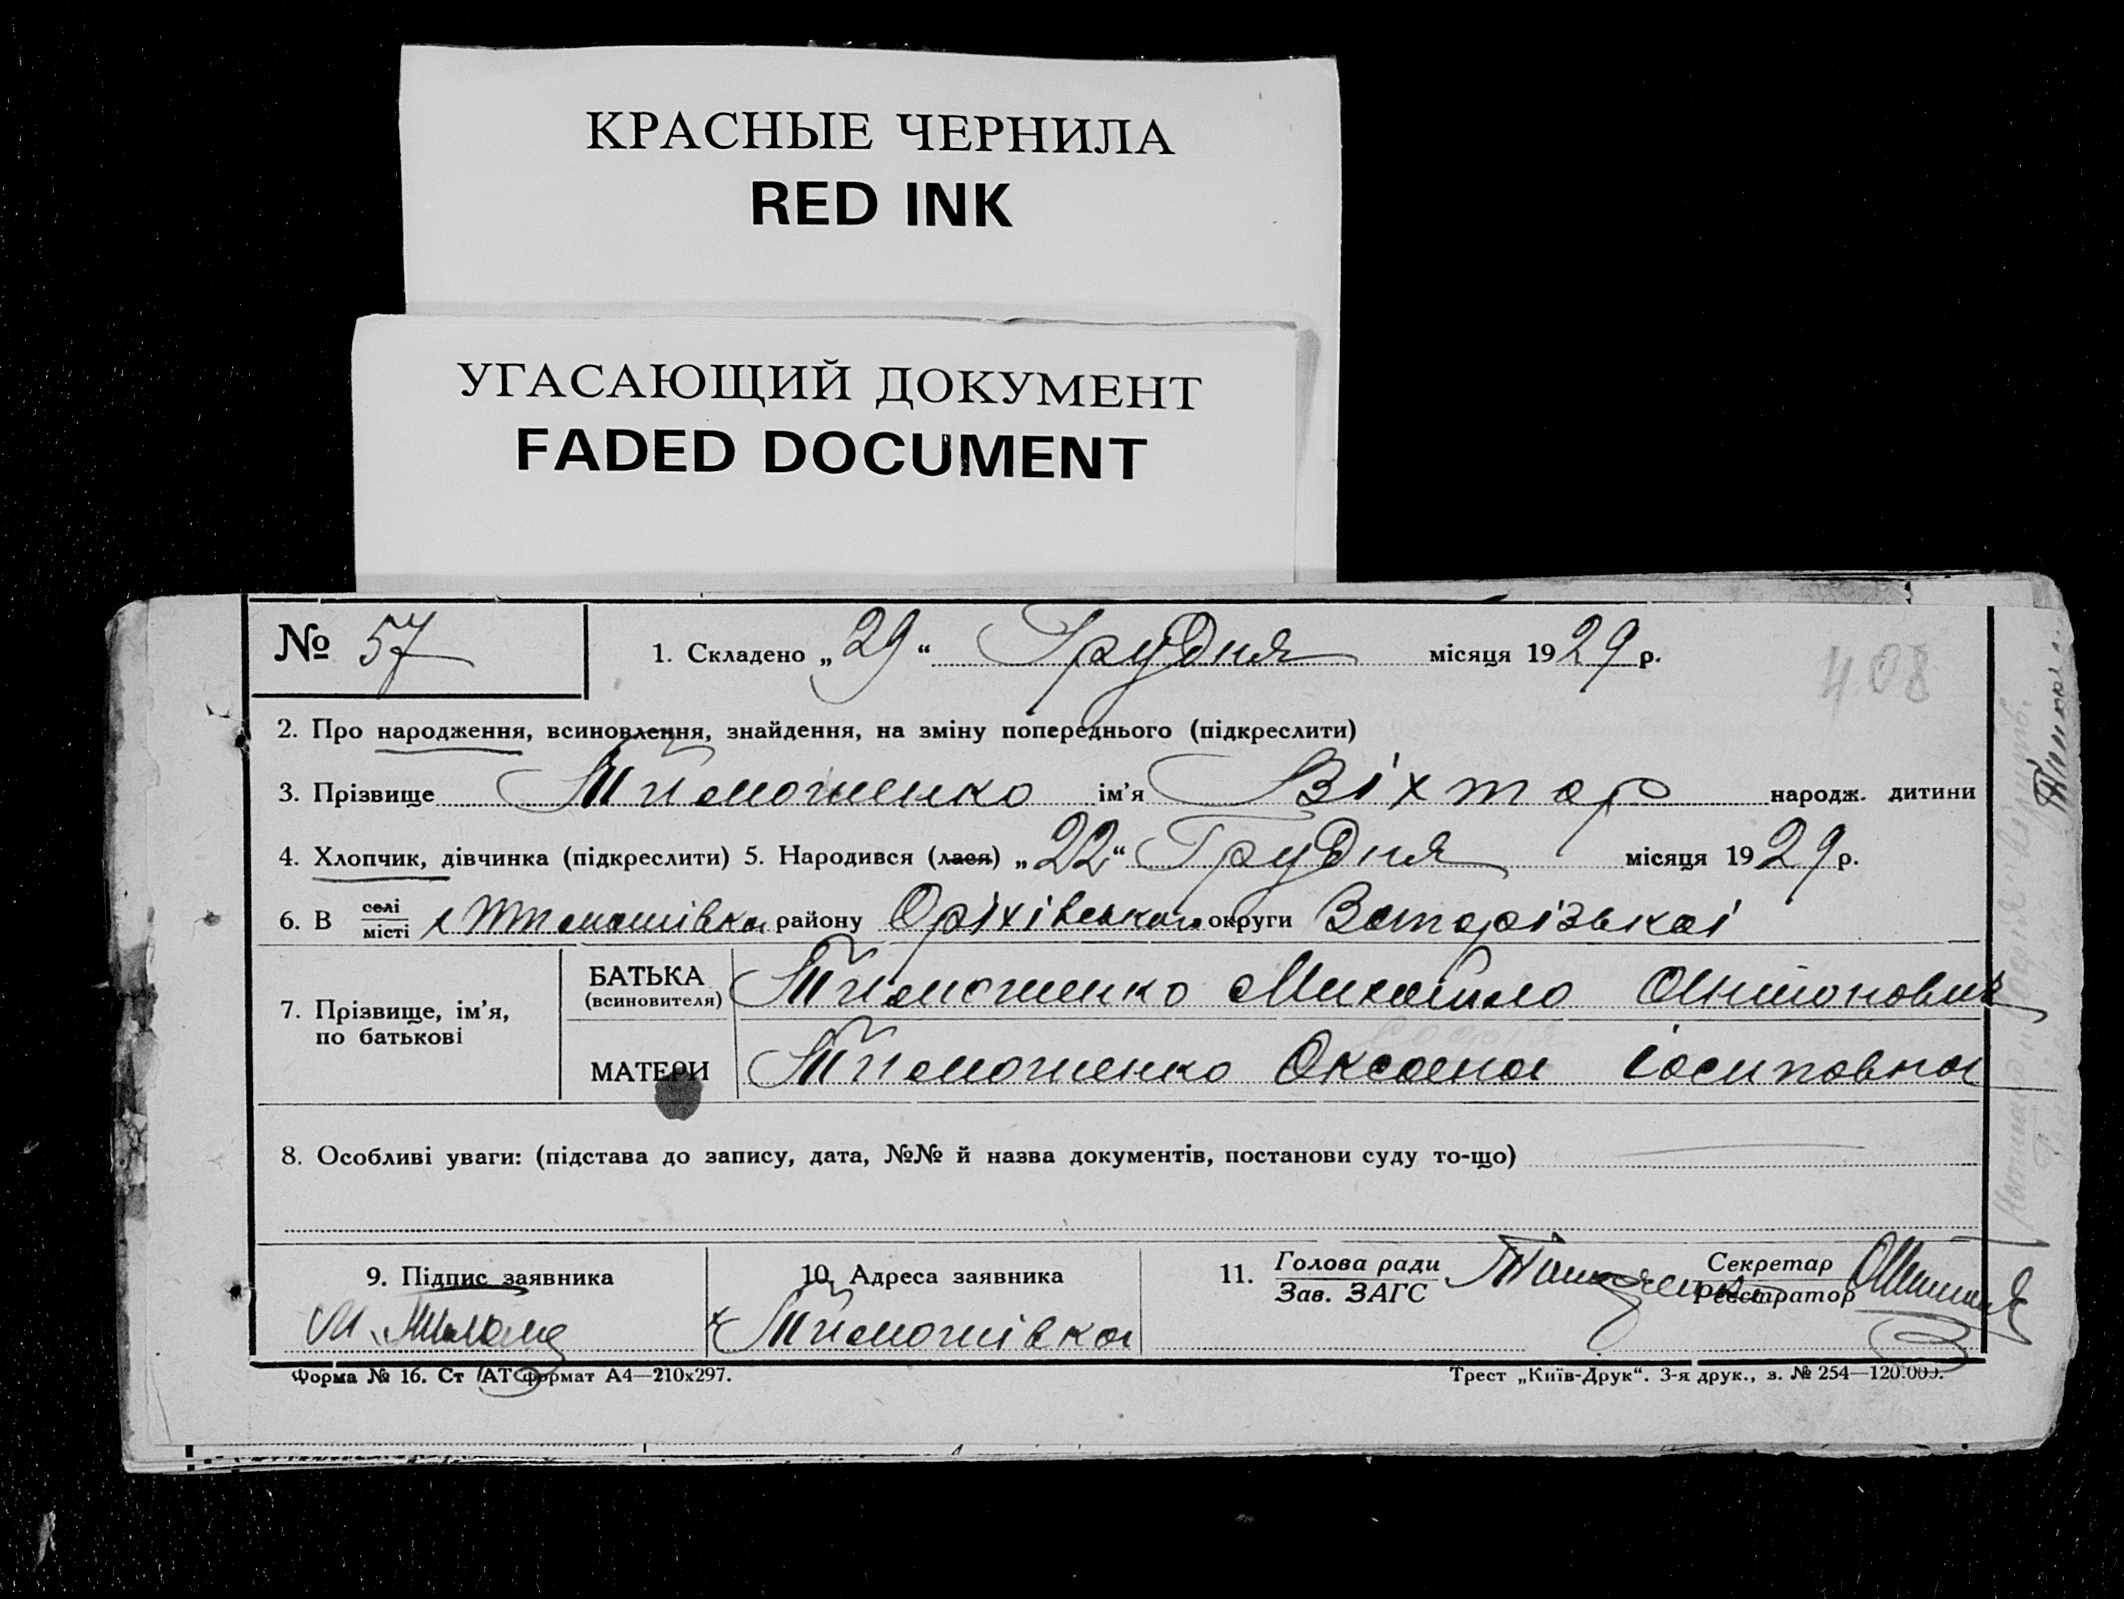 КРАСНЫЕ ЧЕРНИЛА
RED INK
УГАСАЮЩИЙ ДОКУМЕНТ
FADED DOCUMENT
№ 57
1. Складено „29“ Грудня місяця 1929 р.
408
2. Про народження, всиновлення, знайдення, на зміну попереднього (підкреслити)
3. Прізвище Тимошенко ім’я Віхтор народж. дитини
4. Хлопчик, дівчинка (підкреслити) 5. Народився (лася) „22“ Грудня місяця 1929 р.
6. В селі місті Тимошівка району Оріхівського округи Запорізькоі
7. Прізвище, ім’я, по батькові
БАТЬКА (всиновителя) Тимошенко Михайло Антонович
МАТЕРИ Тимошенко Оксана Іосиповна
8. Особливі уваги: (підстава до запису, дата, №№ й назва документів, постанови суду то-що)
9. Підпис заявника
М.
10. Адреса заявника
Тимошівка
11. Голова ради Зав. ЗАГС
Секретар Реєстратор
Форма № 16. Ст АТ формат А4—210х297.
Трест „Київ-Друк“. 3-я друк., з. № 254—120.000.